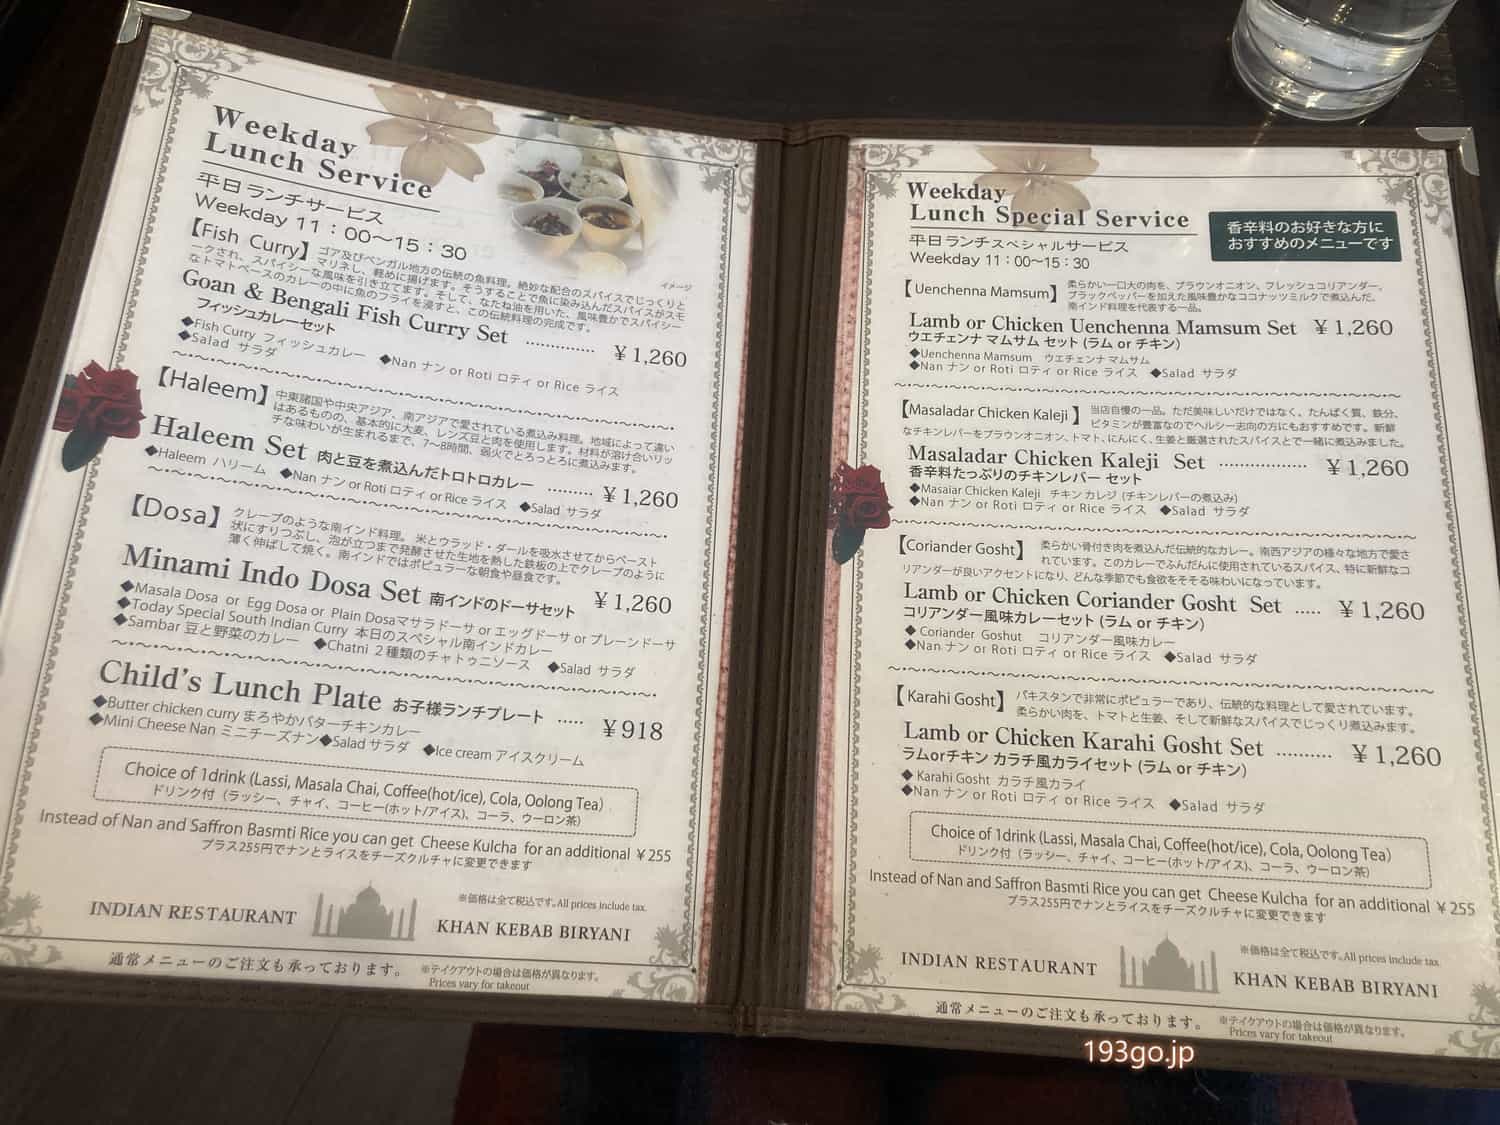 Weekday
Lunch Service
平日ランチサービス
Weekday 11：00〜15：30
イメージ
【Fish Curry】ゴア及びベンガル地方の伝統の魚料理。絶妙な配合のスパイスでじっくりと
マリネし、軽めに揚げます。そうすることで魚に染み込んだスパイスがスモ
ークされ、スパイシーな風味を引き立てます。そして、なたね油を用いた、風味豊かでスパイシー
なトマトベースのカレーの中に魚のフライを浸すと、この伝統料理の完成です。
Goan & Bengali Fish Curry Set ………… ¥1,260
フィッシュカレーセット
◆Fish Curry フィッシュカレー ◆Nan ナン or Roti ロティ or Rice ライス
◆Salad サラダ
【Haleem】中東諸国や中央アジア、南アジアで愛されている煮込み料理。地域によって違い
はあるものの、基本的に大麦、レンズ豆と肉を使用します。材料が溶け合いリッ
チな味わいが生まれるまで、7〜8時間、弱火でとろっとろに煮込みます。
Haleem Set 肉と豆を煮込んだトロトロカレー ……… ¥1,260
◆Haleem ハリーム ◆Nan ナン or Roti ロティ or Rice ライス ◆Salad サラダ
【Dosa】クレープのような南インド料理。 米とウラッド・ダールを吸水させてからペースト
状にすりつぶし、泡が立つまで発酵させた生地を熱した鉄板の上でクレープのように
薄く伸ばして焼く。南インドではポピュラーな朝食や昼食です。
Minami Indo Dosa Set 南インドのドーサセット ¥1,260
◆Masala Dosa or Egg Dosa or Plain Dosaマサラドーサ or エッグドーサ or プレーンドーサ
◆Today Special South Indian Curry 本日のスペシャル南インドカレー
◆Sambar 豆と野菜のカレー ◆Chatni 2種類のチャトゥニソース ◆Salad サラダ
Child's Lunch Plate お子様ランチプレート …… ¥918
◆Butter chicken curry まろやかバターチキンカレー
◆Mini Cheese Nan ミニチーズナン◆Salad サラダ ◆Ice cream アイスクリーム
Choice of 1drink (Lassi, Masala Chai, Coffee(hot/ice), Cola, Oolong Tea)
ドリンク付（ラッシー、チャイ、コーヒー(ホット/アイス)、コーラ、ウーロン茶）
Instead of Nan and Saffron Basmti Rice you can get Cheese Kulcha for an additional ¥255
プラス255円でナンとライスをチーズクルチャに変更できます
※価格は全て税込です。All prices include tax.
INDIAN RESTAURANT KHAN KEBAB BIRYANI
通常メニューのご注文も承っております。 ※テイクアウトの場合は価格が異なります。
Prices vary for takeout
Weekday
Lunch Special Service
平日ランチスペシャルサービス
Weekday 11：00〜15：30
香辛料のお好きな方に
おすすめのメニューです
【Uenchenna Mamsum】柔らかい一口大の肉を、ブラウンオニオン、フレッシュコリアンダー、
ブラックペッパーを加えた風味豊かなココナッツミルクで煮込んだ、
南インド料理を代表する一品。
Lamb or Chicken Uenchenna Mamsum Set ¥1,260
ウエチェンナ マムサム セット (ラム or チキン)
◆Uenchenna Mamsum ウエチェンナ マムサム
◆Nan ナン or Roti ロティ or Rice ライス ◆Salad サラダ
【Masaladar Chicken Kaleji】当店自慢の一品。ただ美味しいだけではなく、たんぱく質、鉄分、
ビタミンが豊富なのでヘルシー志向の方にもおすすめです。新鮮
なチキンレバーをブラウンオニオン、トマト、にんにく、生姜と厳選されたスパイスとで一緒に煮込みました。
Masaladar Chicken Kaleji Set ……………… ¥1,260
香辛料たっぷりのチキンレバー セット
◆Masaiar Chicken Kaleji チキン カレジ (チキンレバーの煮込み)
◆Nan ナン or Roti ロティ or Rice ライス ◆Salad サラダ
【Coriander Gosht】柔らかい骨付き肉を煮込んだ伝統的なカレー。南西アジアの様々な地方で愛さ
れています。このカレーでふんだんに使用されているスパイス、特に新鮮なコ
リアンダーが良いアクセントになり、どんな季節でも食欲をそそる味わいになっています。
Lamb or Chicken Coriander Gosht Set …… ¥1,260
コリアンダー風味カレーセット (ラム or チキン)
◆Coriander Goshut コリアンダー風味カレー
◆Nan ナン or Roti ロティ or Rice ライス ◆Salad サラダ
【Karahi Gosht】パキスタンで非常にポピュラーであり、伝統的な料理として愛されています。
柔らかい肉を、トマトと生姜、そして新鮮なスパイスでじっくり煮込みます。
Lamb or Chicken Karahi Gosht Set ………… ¥1,260
ラムorチキン カラチ風カライセット (ラム or チキン)
◆Karahi Gosht カラチ風カライ
◆Nan ナン or Roti ロティ or Rice ライス ◆Salad サラダ
Choice of 1drink (Lassi, Masala Chai, Coffee(hot/ice), Cola, Oolong Tea)
ドリンク付（ラッシー、チャイ、コーヒー(ホット/アイス)、コーラ、ウーロン茶）
Instead of Nan and Saffron Basmti Rice you can get Cheese Kulcha for an additional ¥255
プラス255円でナンとライスをチーズクルチャに変更できます
※価格は全て税込です。All prices include tax.
INDIAN RESTAURANT KHAN KEBAB BIRYANI
通常メニューのご注文も承っております。 ※テイクアウトの場合は価格が異なります。
Prices vary for takeout
193go.jp